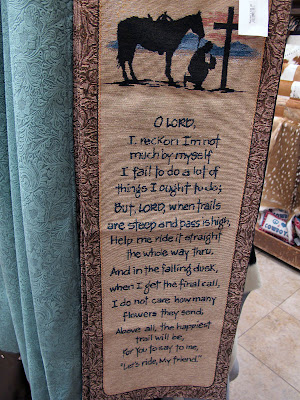 O LORD,
I reckon I'm not
much by myself
I fail to do a lot of
things I ought to do;
But, LORD, when trails
are steep and pass is high,
Help me ride it straight
the whole way thru.
And in the falling dusk,
when I get the final call,
I do not care how many
flowers they send,
Above all, the happiest
trail will be,
For You to say to me,
"Let's ride, My friend."